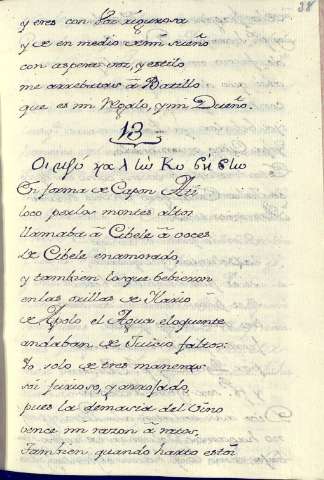 38
y eres con voz rigurosa
y de en medio de mi sueño
con aspera voz, y estilo
me arrebatas à Batillo
que es mi Regalo, y mi Dueño.
13
Οι μεν καλ
En forma de Capon Ati
loco por los montes altos
llamaba à Cibele à voces
de Cibele enamorado,
y tambien los que bebieron
en las orillas de Klario
de Apolo el Agua eloquente
andaban de Juicio faltos:
Yo solo de tres maneras
soi furioso, y arrojado,
pues la demasia del Vino
vence mi razon à ratos,
tambien quando harto estoi